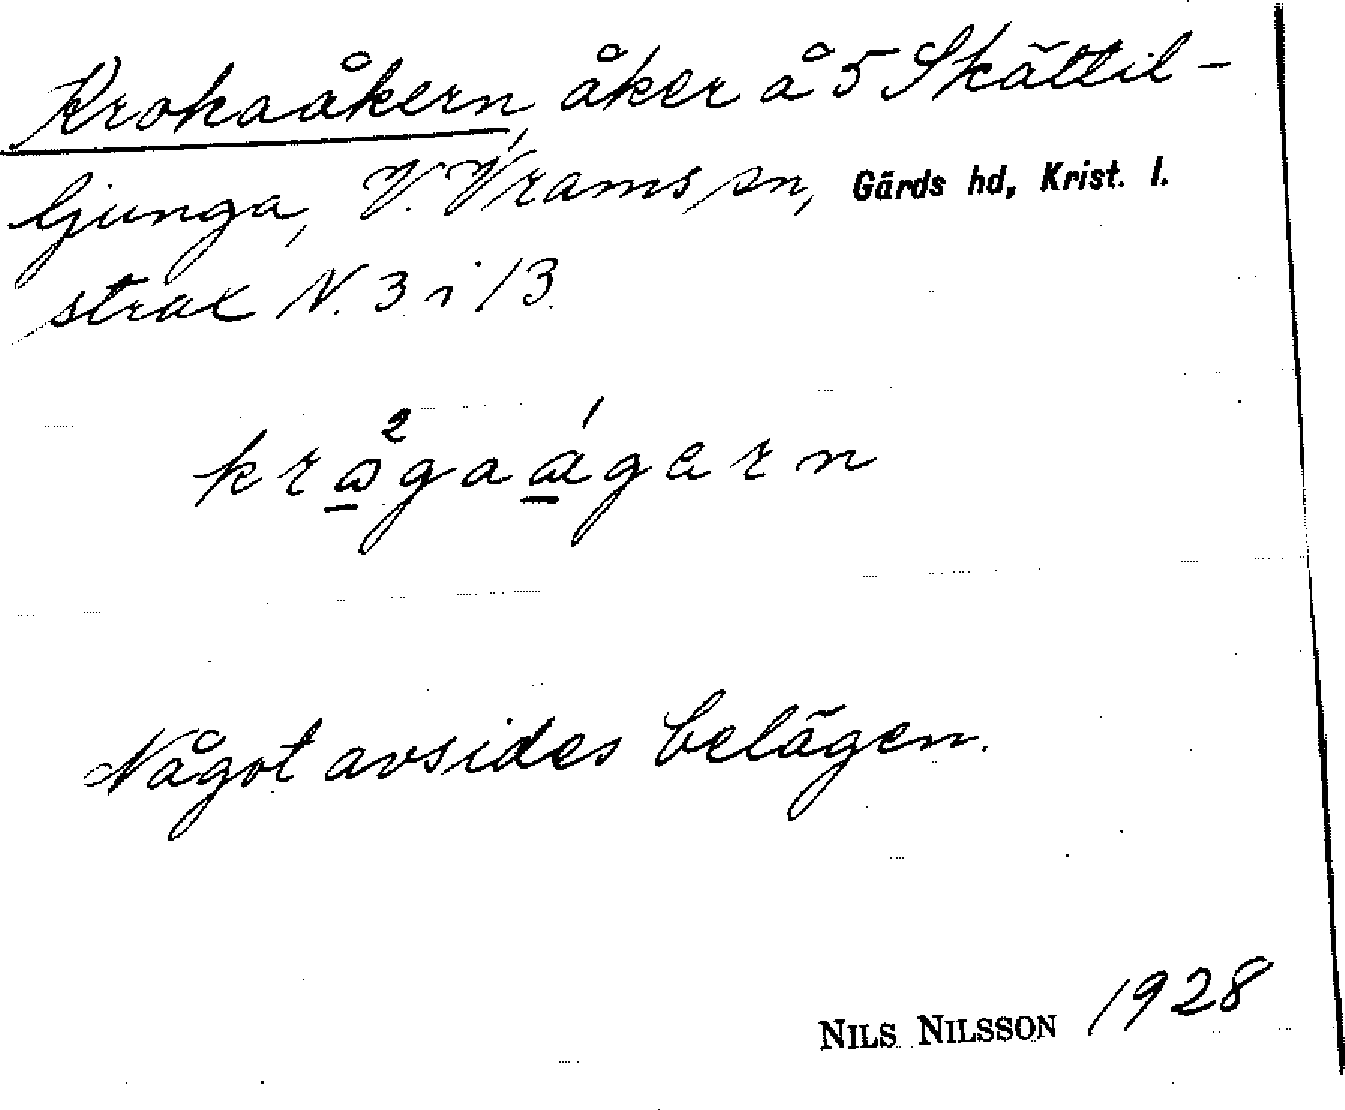 Krokaåkern, åker å 5 Skättil-
ljunga, V. Vrams sn, Gärds hd, Krist. l.
strax N. 3 i 13.
kråga ågarn
Något avsides belägen.
NILS NILSSON 1928